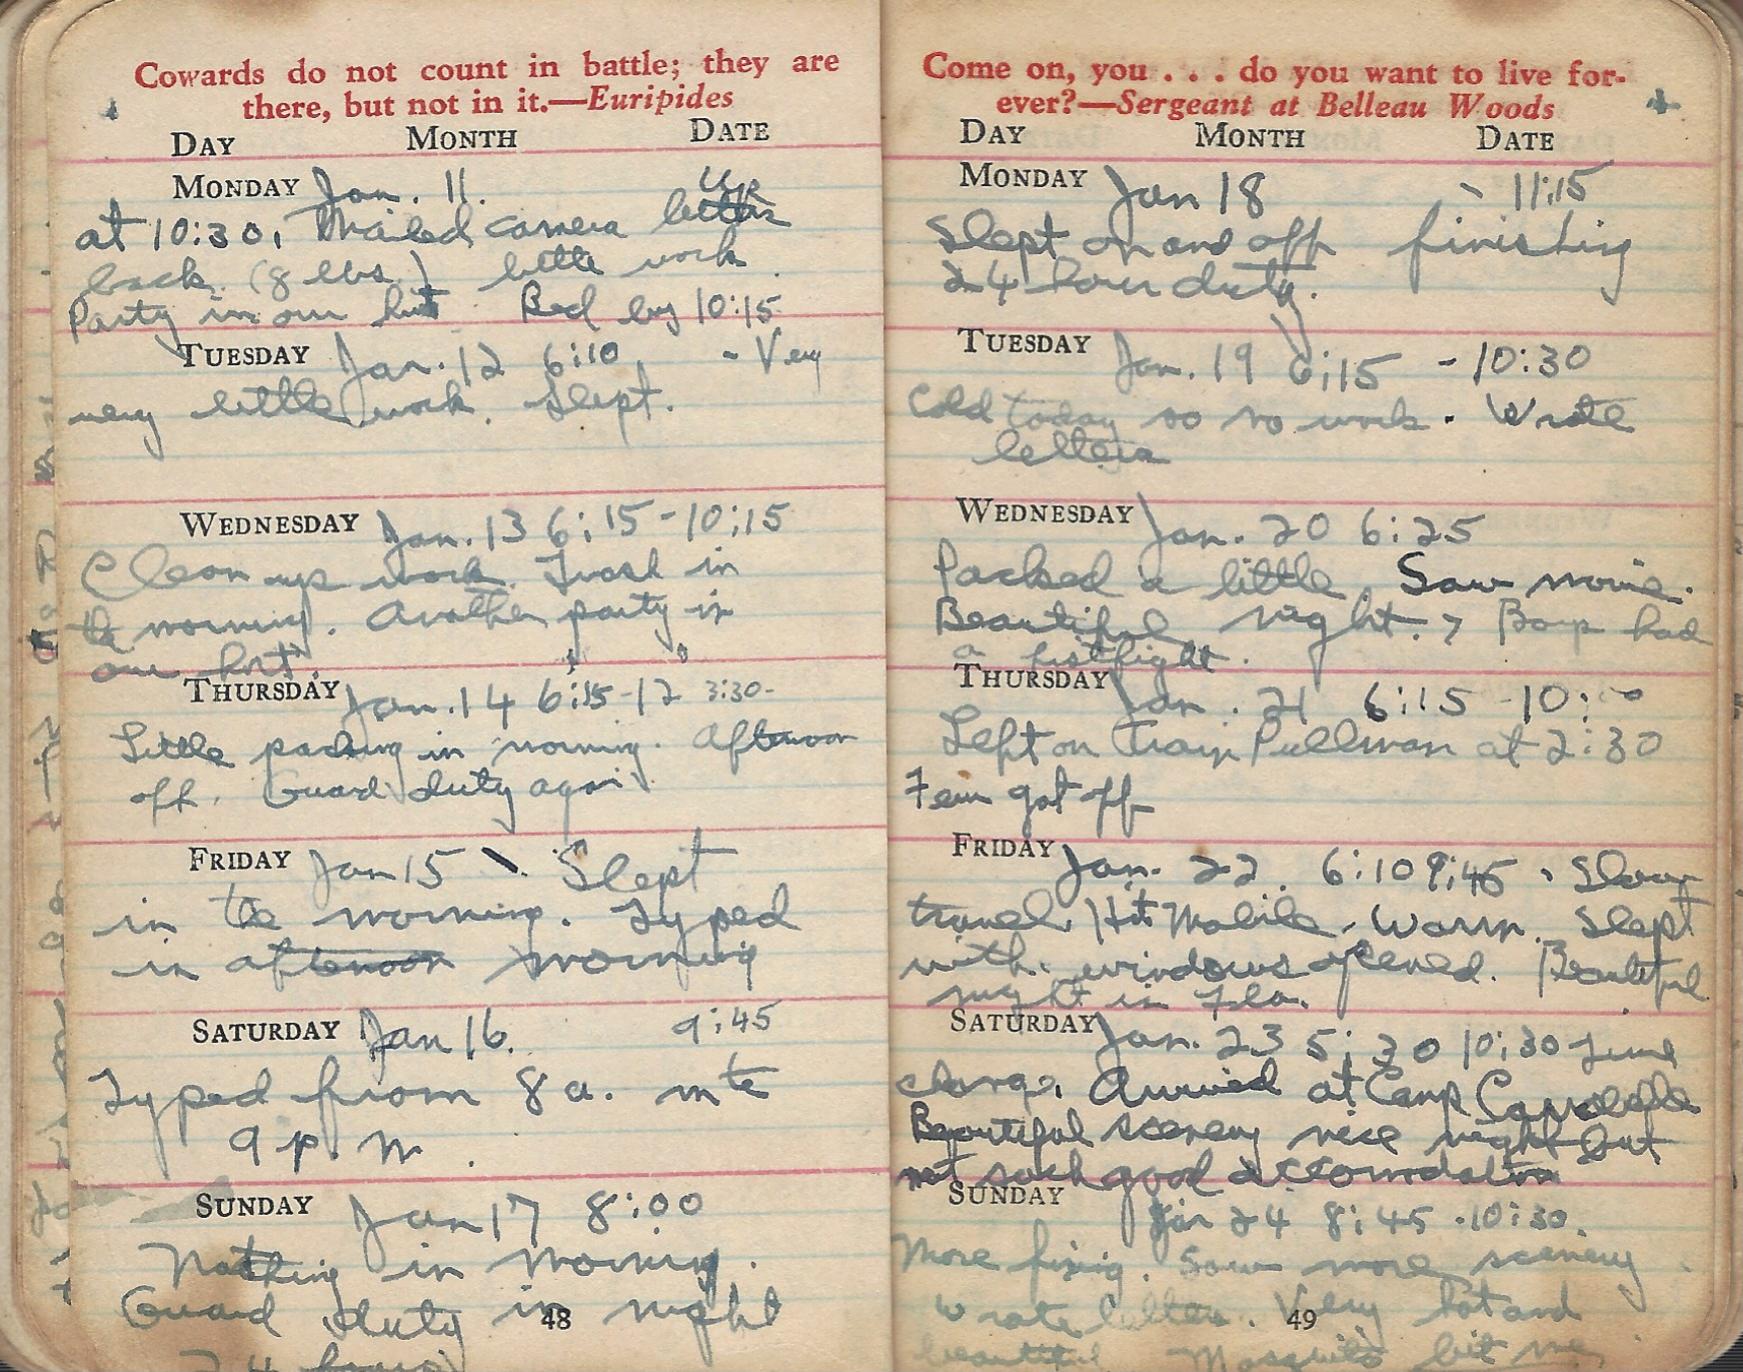 Cowards do not count in battle; they are
there, but not in it.—Euripides
DAY MONTH DATE
MONDAY Jan. 11. Up
at 10:30, Mailed camera letters
back. (8 lbs.) little work
Party in our hut Bed by 10:15
TUESDAY Jan. 12 6:10 - Very
very little work. Slept.
WEDNESDAY Jan. 13 6:15-10:15
Clean up work. Trash in
the morning. Another party in
our hut.
THURSDAY Jan. 14 6:15-12 3:30-
Little packing in morning. Afternoon
off. Guard duty again
FRIDAY Jan 15 Slept
in the morning. Typed
in afternoon morning
SATURDAY Jan 16. 9:45
Typed from 8 a. m to
9 p. m.
SUNDAY Jan 17 8:00
Nothing in morning.
Guard duty in night
24 hours
48
Come on, you . . . do you want to live for-
ever?—Sergeant at Belleau Woods
DAY MONTH DATE
MONDAY Jan 18 - 11:15
Slept on and off finishing
24 hour duty.
TUESDAY Jan. 19 6:15 - 10:30
Cold today so no work. Wrote
letters
WEDNESDAY Jan. 20 6:25
Packed a little. Saw movie.
Beautiful night. 7 Boys had
a fistfight.
THURSDAY Jan. 21 6:15 -10:
Left on train Pullman at 2:30
Few got off
FRIDAY Jan. 22. 6:10 9:45. Slow
travel. Hit Mobile. Warm. Slept
with windows opened. Beautiful
night in Fla.
SATURDAY Jan. 23 5:30 10:30 Time
change. Arrived at Camp
Beautiful scenery nice night but
not such good accomodation
SUNDAY Jan 24 8:45 -10:30.
More fixing. Saw more scenery
wrote letters. Very hot and
beautiful Mosquito bit me
49